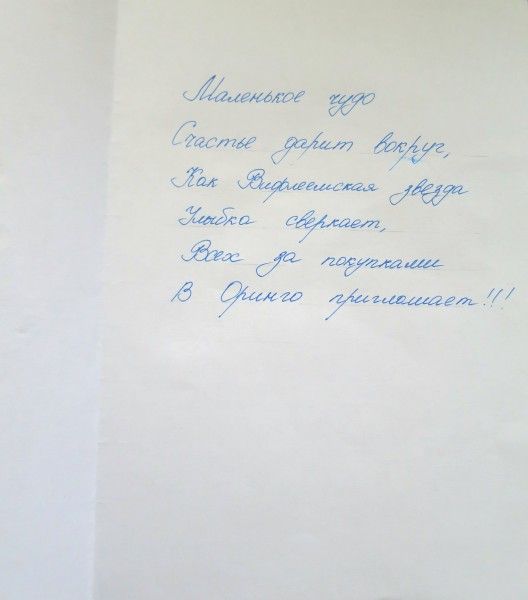 Маленькое чудо
Счастье дарит вокруг,
Как Вифлеемская звезда
Улыбка сверкает,
Всех за покупками
В Оринго приглашает!!!